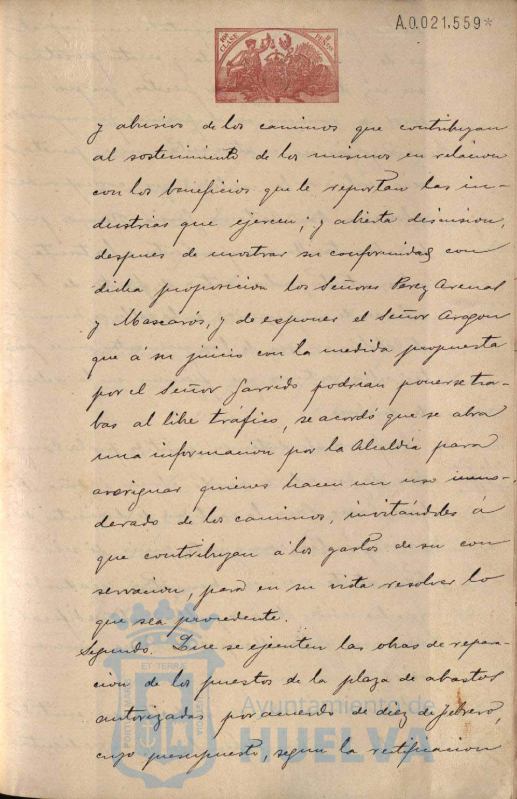 A.0.021,559*
y abusivo de los caminos que contribuyan
al sostenimiento de los mismos en relacion
con los beneficios que le reportan las in-
dustrias que ejercen; y abierta discusion,
despues de mostrar su conformidad con
dicha proposicion los Señores Perez Arenal
y Mascarós, y de exponer el Señor Aragon
que á su juicio con la medida propuesta
por el Señor Garrido podrian ponerse tra-
bas al libre tráfico, se acordó que se abra
una informacion por la Alcaldía para
averiguar quienes hacen un uso inmo-
derado de los caminos, invitándoles á
que contribuyan á los gastos de su con
servacion, para en su vista resolver lo
que sea procedente.
Segundo. Que se ejecuten las obras de repara-
cion de los puestos de la plaza de abastos
autorizadas por acuerdo de diez de febrero,
cuyo presupuesto, segun la rectificacion
Ayuntamiento de
HUELVA